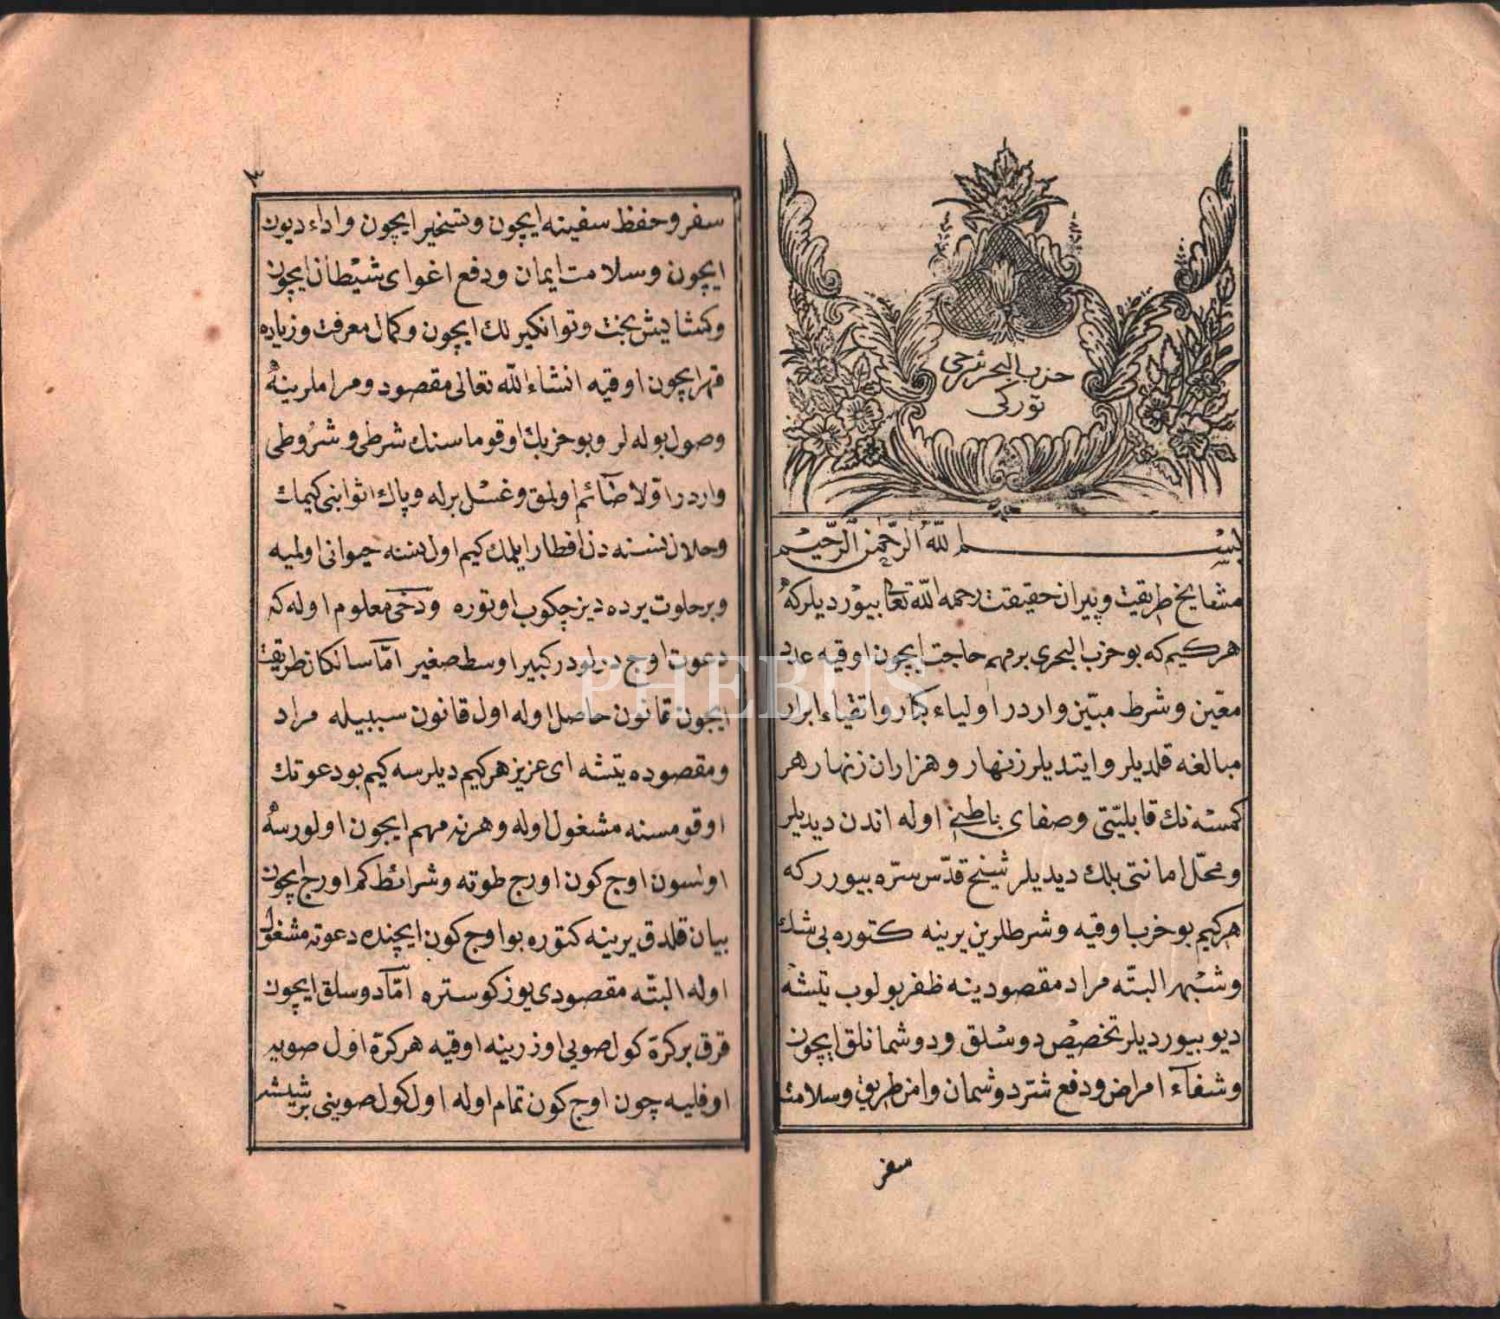 حزب البحر شرحى
توركى
بسم الله الرحمن الرحيم
مشايخ طريقت و پيران حقيقت رحمه الله تعالى بيورديلر كه
هركيم كه بو حزب البحرى بر مهم حاجت ايچون اوقيه عدد
معين و شرط مبين واردر اولياء كبار و اتقياء ابرار
مبالغه قلديلر و ايتديلر زنهار و هزاران زنهار هر
كمسه نك قابليتى و صفاى باطنى اوله اندن ديديلر
و محل امانتى بلك ديديلر شيخ قدس سره بيورر كه
هركيم بو حزب اوقيه و شرطلرين يرينه كتوره بى شك
و شبهه البته مراد مقصودينه ظفر بولوب يتشه
ديو بيورديلر تخصيص دوسلق و دوشمانلق ايچون
و شفاء امراض و دفع شر دوشمان و امن طريق و سلامت
سفر
٣
سفر و حفظ سفينه ايچون و تسخير ايچون و اداء ديون
ايچون و سلامت ايمان و دفع اغواى شيطان ايچون
و كشايش بخت و توانكيرلك ايچون و كمال معرفت و زياده
قهر ايچون اوقيه انشاء الله تعالى مقصود و مراملرينه
وصول بوله لر و بو حزبك اوقوماسنك شرطى و شروطى
واردر اولا صائم اولمق و غسل برله و پاك اثوابنى كيمك
و حلال نسنه دن افطار ايلمك كيم اول نسنه حيوانى اولميه
و بر خلوت يرده ديز چكوب اوتوره و دخى معلوم اوله كه
دعوت اوج درلودر كبير اوسط صغير اما سالكان طريقت
ايجون قانون حاصل اوله اول قانون سببيله مراد
و مقصوده يتشه اى عزيز هركيم ديلرسه كيم بو دعوتك
اوقومسنه مشغول اوله و هر نه مهم ايجون اولورسه
اولسون اوج كون اورج طوته و شرائط كم اورج ايچون
بيان قلدق يرينه كتوره بو اوج كون ايچنده دعوته مشغول
اوله البته مقصودى يوز كوستره اما دوسلق ايچون
قرق بر كره كول صويى اوزرينه اوقيه هر كره اول صويه
اوفليه چون اوج كون تمام اوله اول كول صوينى بر شيشه
PHEBUS